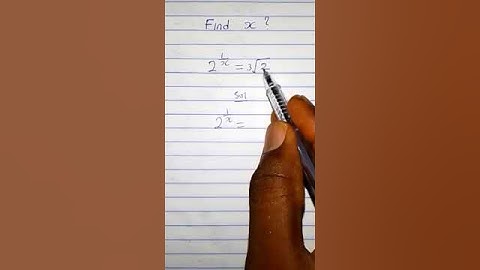 Find x ?
2^{1/x} = ³√2
Sol
2^{1/x} =